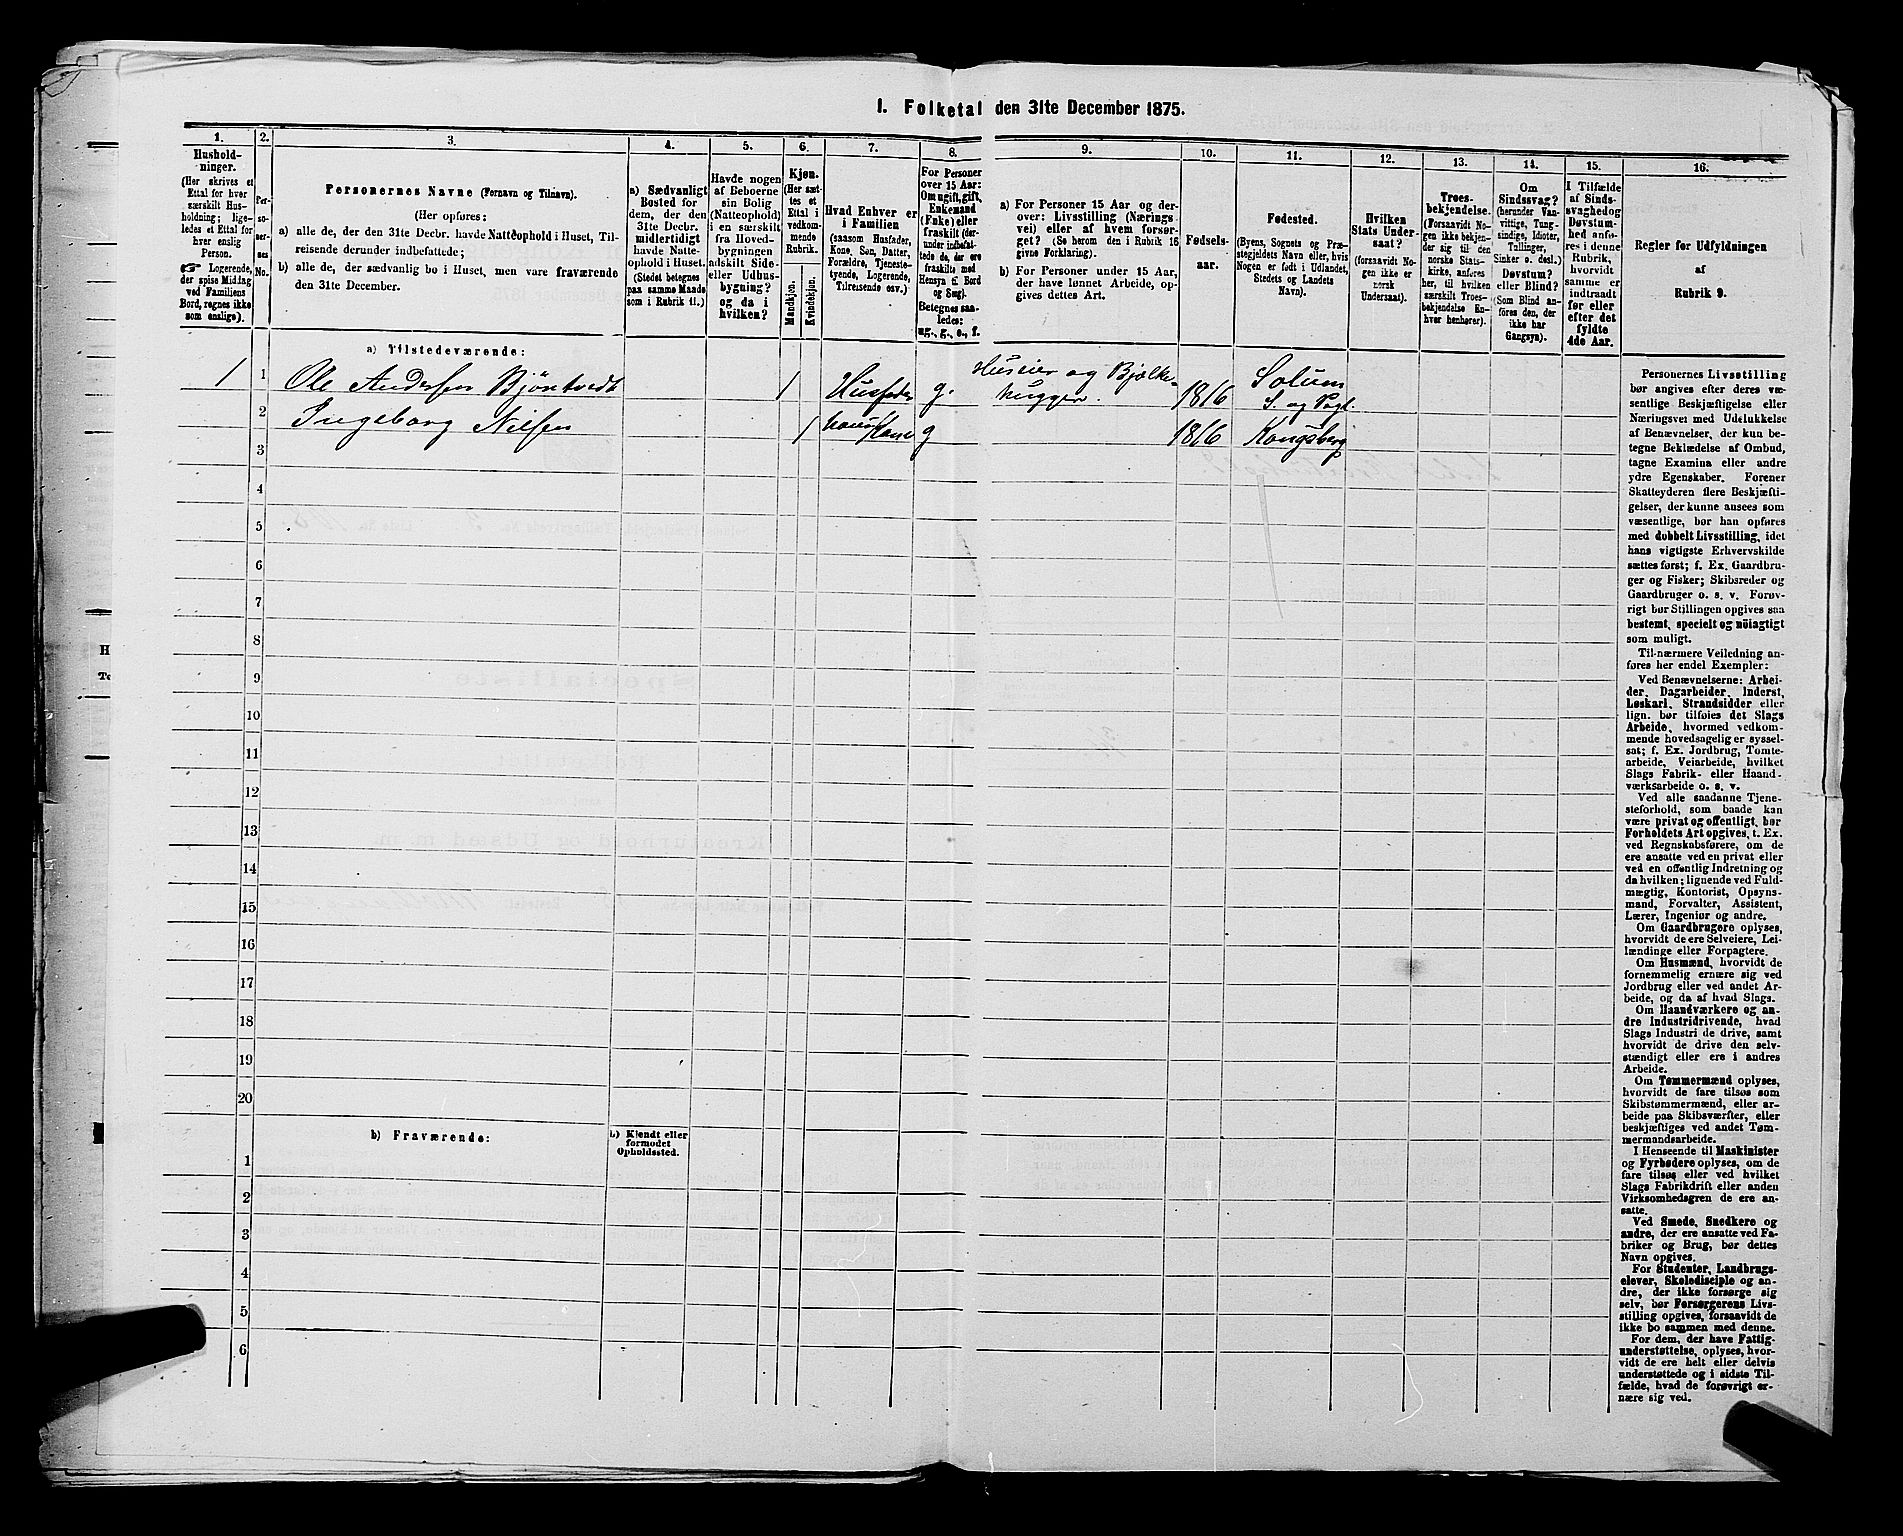 I. Folketal den 31te December 1875.
1.
Hushold-
ninger.
(Her skrives et
Ettal for hver
særskilt Hus-
holdning; lige-
ledes et Ettal for
hver enslig
Person.
Logerende,
der spise Middag
ved Familiens
Bord, regnes ikke
som enslige).
2.
Per-
so-
ner-
nes
No.
3.
Personernes Navne (Fornavn og Tilnavn).
(Her opføres:
a) alle de, der den 31te Decbr. havde Natteophold i Huset, Til-
reisende derunder indbefattede;
b) alle de, der sædvanlig bo i Huset, men vare fraværende
den 31te December.
4.
a) Sædvanligt
Bosted for
dem, der den
31te Decbr.
midlertidigt
havde Natte-
ophold i Huset.
(Stedet betegnes
paa samme Maade
som i Rubrik 11.)
5.
Havde nogen
af Beboerne
sin Bolig
(Natteophold)
i en særskilt
fra Hoved-
bygningen
adskilt Side-
eller Udhus-
bygning?
og da i
hvilken?
6.
Kjøn.
(Her sæt-
tes et
Ettal i
vedkom-
mende
Rubrik.
Mandkjøn.
Kvindekjøn.
7.
Hvad Enhver er
i Familien
(saasom Husfader,
Kone, Søn, Datter,
Forældre, Tjeneste-
tyende, Logerende,
Tilreisende osv.)
8.
For Personer
over 15 Aar:
Om ugift, gift,
Enkemand
(Enke) eller
fraskilt (der-
under indbefat-
tede de, der ere
fraskilte med
Hensyn til Bord
og Seng).
Betegnes saa-
ledes:
ug., g., e., f.
9.
a) For Personer 15 Aar og der-
over: Livsstilling (Nærings-
vei) eller af hvem forsør-
get? (Se herom den i Rubrik 16
givne Forklaring).
b) For Personer under 15 Aar,
der have lønnet Arbeide, op-
gives dettes Art.
10.
Fødsels-
aar.
11.
Fødested.
(Byens, Sognets og Præ-
stegjeldets Navn eller, hvis
Nogen er født i Udlandet,
Stedets og Landets
Navn).
12.
Hvilken
Stats Under-
saat?
(forsaavidt No-
gen ikke er
norsk
Undersaat).
13.
Troes-
bekjendelse.
(Forsaavidt No-
gen ikke bekjen-
der sig til den
norske Stats-
kirke, anføres
her, til hvilken
særskilt Troes-
bekjendelse En-
hver henhører).
14.
Om
Sindssvag?
(herunder Van-
vittige, Tung-
sindige, Idioter,
Tullinger,
Sinker o. desl.)
Døvstum?
eller Blind?
(Som Blind an-
føres den, der
ikke har
Gangsyn).
15.
I Tilfælde
af Sinds-
svaghed og
Døvstum-
hed anfø-
res i denne
Rubrik,
hvorvidt
samme er
indtraadt
før eller
efter det
fyldte
4de Aar.
16.
Regler for Udfyldningen
af
Rubrik 9.
a) Tilstedeværende:
1 1 Ole Andersen Bjöntvedt 1 Husfader g. Huseier og Bjelke-
hugger. 1816 Solum
S. og Pgl.
2 Ingeborg Nilsen 1 Kone g 1816 Kongsberg
3
4
5
6
7
8
9
10
11
12
13
14
15
16
17
18
19
20
b) Fraværende:
b) Kjendt eller
formodet
Opholdssted.
1
2
3
4
5
6
Personernes Livsstilling
bør angives efter deres væ-
sentlige Beskjæftigelse eller
Næringsvei med Udelukkelse
af Benævnelser, der kun be-
tegne Beklædelse af Ombud,
tagne Examina eller andre
ydre Egenskaber. Forener
Skatteyderen flere Beskjæfti-
gelser, der kunne ansees som
væsentlige, bør han opføres
med dobbelt Livsstilling, idet
hans vigtigste Erhvervskilde
sættes først; f. Ex. Gaardbru-
ger og Fisker; Skibsreder og
Gaardbruger o. s. v. Forøv-
rigt bør Stillingen opgives saa
bestemt, specielt og nöiagtigt
som muligt.
Til nærmere Veiledning an-
føres her endel Exempler:
Ved Benævnelserne: Arbei-
der, Dagarbeider, Inderst,
Løskarl, Strandsidder eller
lign. bør tilføies det Slags
Arbeide, hvormed vedkom-
mende hovedsagelig er syssel-
sat; f. Ex. Jordbrug, Tomte-
arbeide, Veiarbeide, hvilket
Slags Fabrik- eller Haand-
værksarbeide o. s. v.
Ved alle saadanne Tjene-
steforhold, som baade kan
være privat og offentligt, bør
Forholdets Art opgives, t. Ex.
ved Regnskabsførere, om de
ere ansatte ved en privat eller
ved en offentlig Indretning og
da hvilken; lignende ved Fuld-
mægtig, Kontorist, Opsyns-
mand, Forvalter, Assistent,
Lærer, Ingeniør og andre.
Om Gaardbrugere oplyses,
hvorvidt de ere Selveiere, Lei-
lændinge eller Forpagtere.
Om Husmænd, hvorvidt de
fornemmelig ernære sig ved
Jordbrug eller ved andet Ar-
beide, og da af hvad Slags.
Om Haandværkere og an-
dre Industridrivende, hvad
Slags Industri de drive, samt
hvorvidt de drive den selv-
stændigt eller ere i andres
Arbeide.
Om Tømmermænd oplyses,
hvorvidt de fare tilsøs som
Skibstømmermænd, eller ar-
beide paa Skibsværfter, eller
beskjæftiges ved andet Tøm-
mermandsarbeide.
I Henseende til Maskinister
og Fyrbødere oplyses, om de
fare tilsøs eller ved hvilket
Slags Fabrikdrift eller anden
Virksomhedsgren de ere an-
satte.
Ved Smede, Snedkere og
andre, der ere ansatte ved Fa-
briker og Brug, bør dettes
Navn opgives.
For Studenter, Landbrugs-
elever, Skoledisciple og an-
dre, der ikke forsørge sig
selv, bør Forsørgerens Livs-
stilling opgives, forsaavidt de
ikke bo sammen med denne.
For dem, der have Fattig-
understøttelse, oplyses, hvor-
vidt de ere helt eller delvis
understøttede og i sidste Til-
fælde, hvad de forøvrigt er-
nære sig ved.